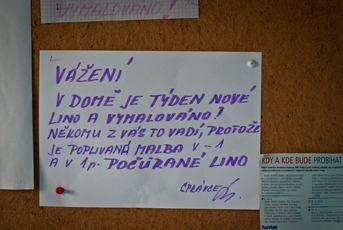 VYMALOVÁNO!
VÁŽENÍ
V DOMĚ JE TÝDEN NOVÉ
LINO A VYMALOVÁNO!
NĚKOMU Z VÁS TO VADÍ, PROTOŽE
JE POPLIVANÁ MALBA V -1
A V 1p. POČŮRANÉ LINO
SPRÁVCE
KDY A KDE BUDE PROBÍHAT